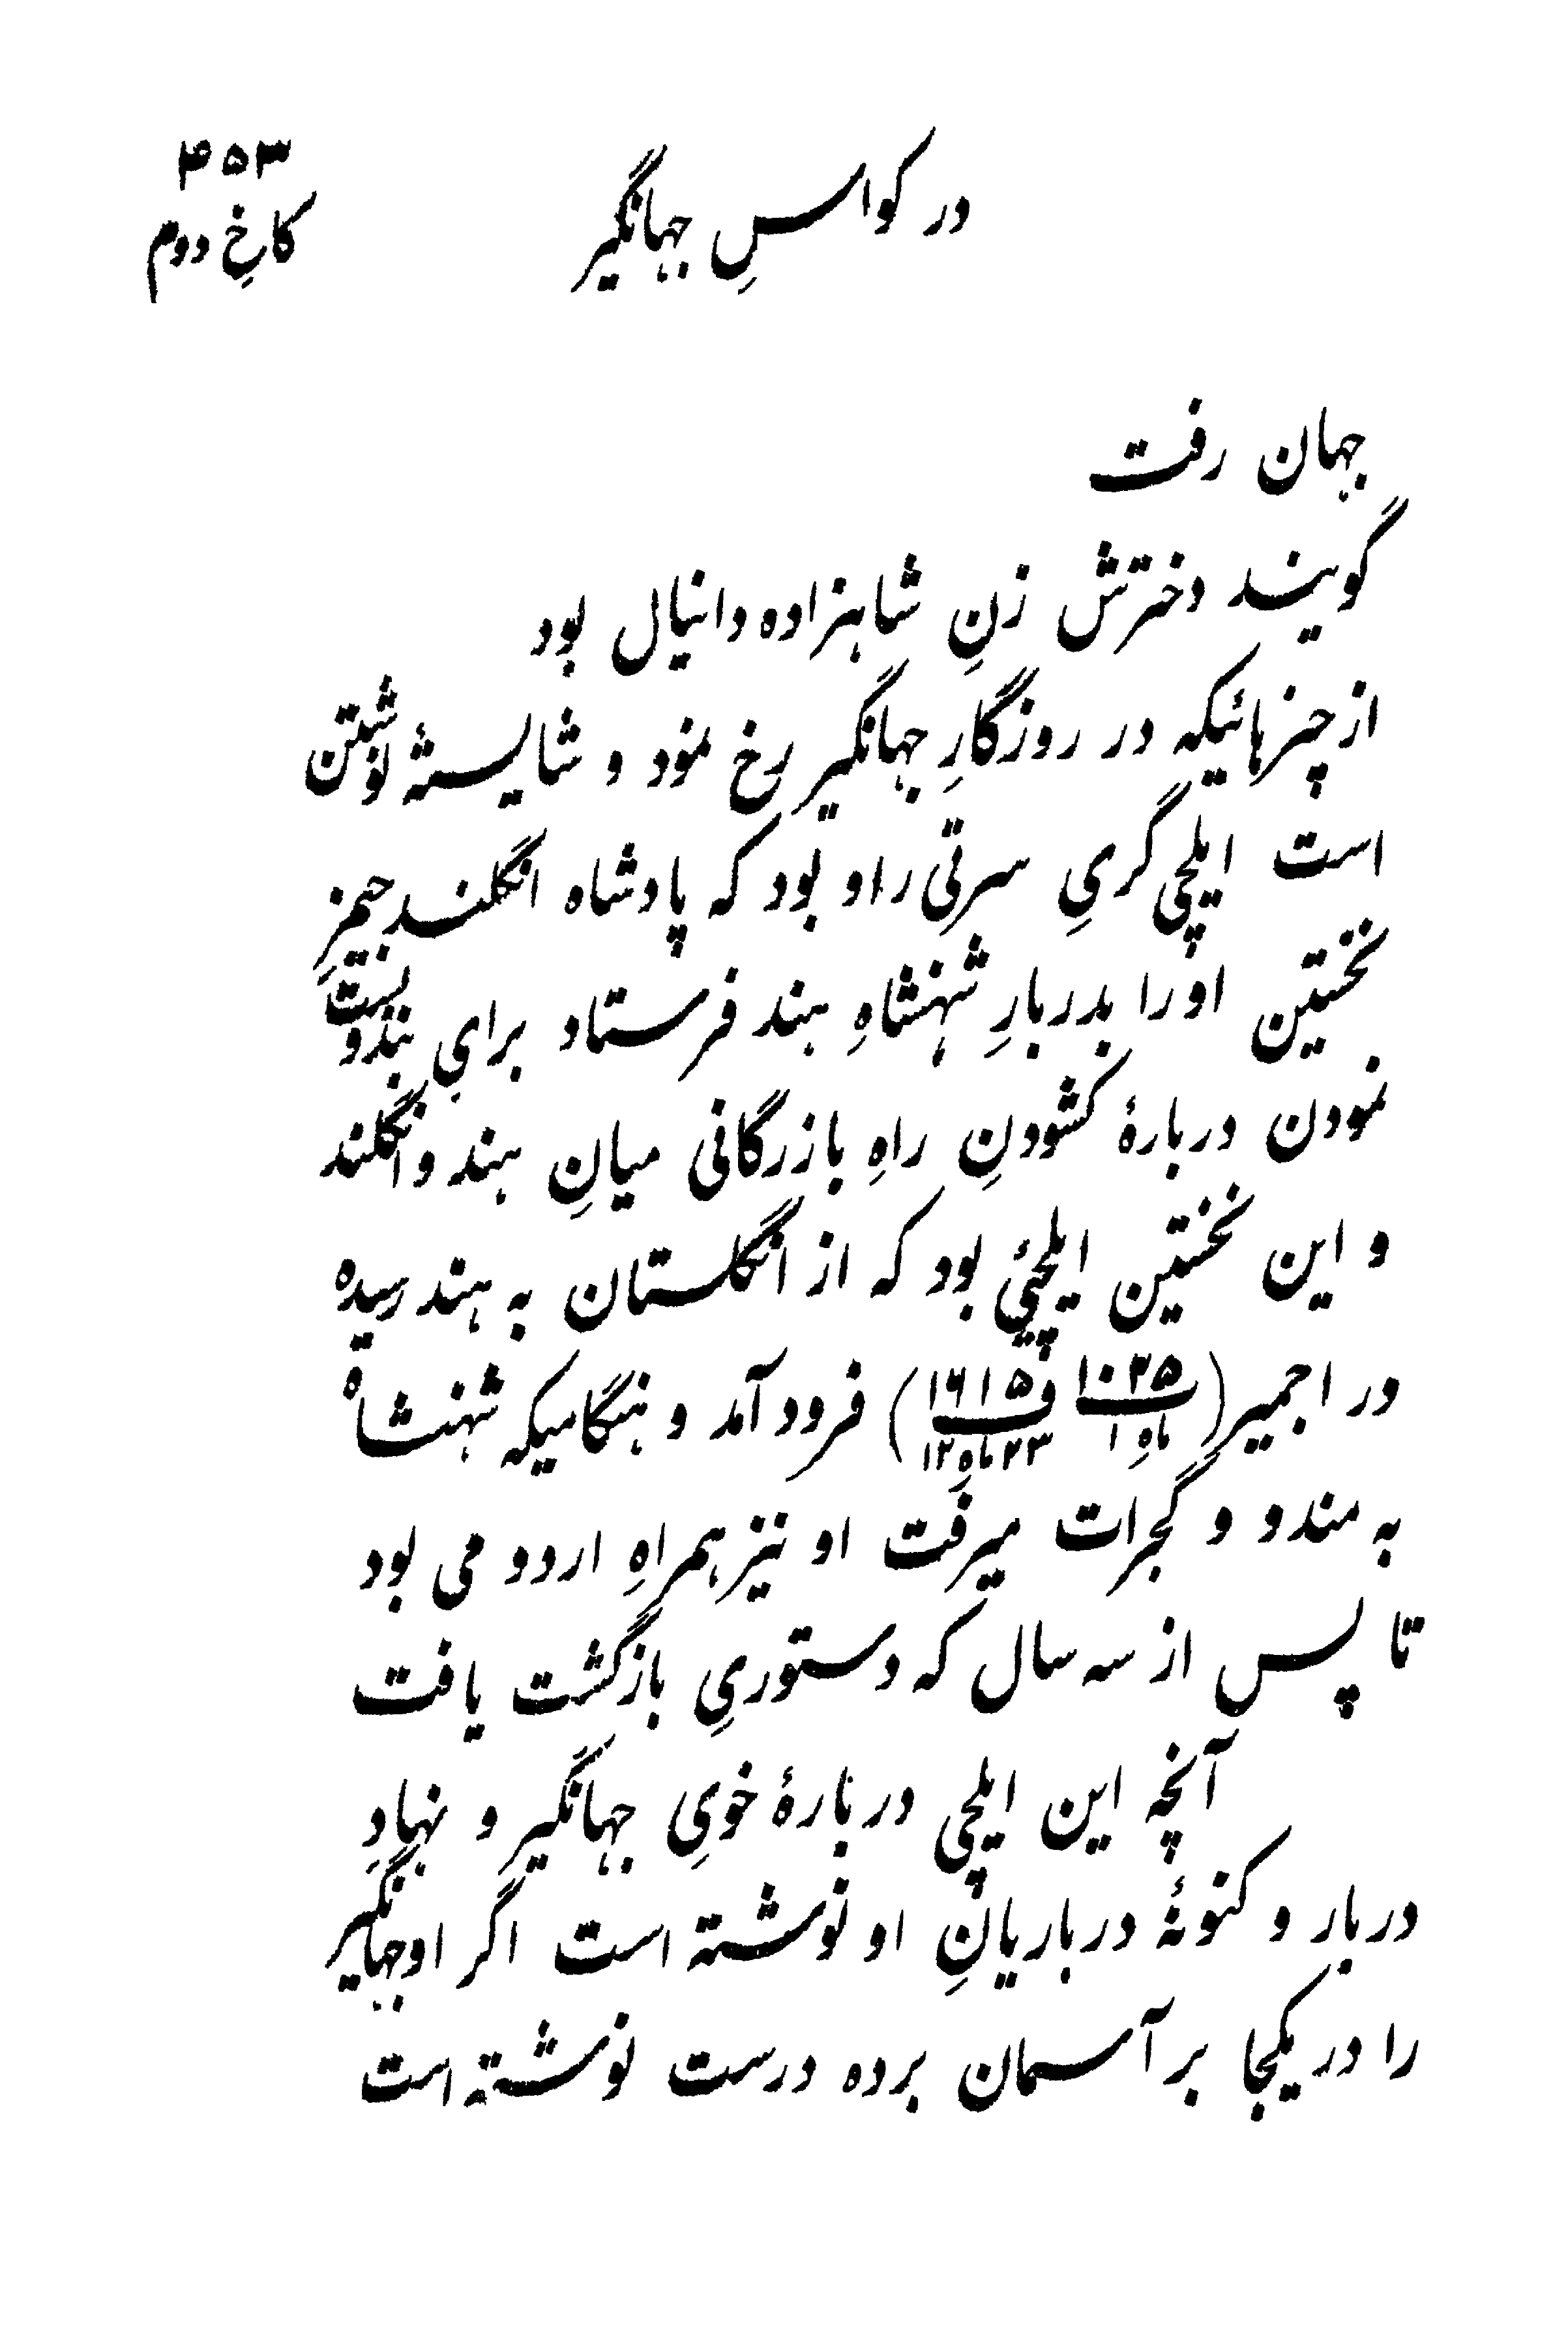 ۴۵۳
در کواسِ جهانگیر
کاخِ دوم
جهان رفت
گویند دخترش زنِ شاهزاده دانیال بود
از چیزهائیکه در روزگارِ جهانگیر رخ نمود و شایستهٔ نوشتن
است ایلچی گریِ سرتی راو بود که پادشاه انگلند جیمزِ
نخستین او را بدربارِ شهنشاهِ هند فرستاد برایِ بند و بست
نمودن دربارهٔ کشودنِ راهِ بازرگانی میانِ هند و انگلند
و این نخستین ایلچیٔ بود که از انگلستان به هند رسیده
در اجمیر (۱۰۲۵ ماهِ ۱ ۱۶۱۵ ف ۲۳ ماهِ ۱۲) فرود آمد و هنگامیکه شهنشاه
به مندو و گجرات میرفت او نیز همراهِ اردو می بود
تا پس از سه سال که دستوریِ بازگشت یافت
آنچه این ایلچی دربارهٔ خویِ جهانگیر و نهادِ
دربار و کنونهٔ درباریانِ او نوشته است اگر او جهانگیر
را در یکجا بر آسمان برده درست نوشته است